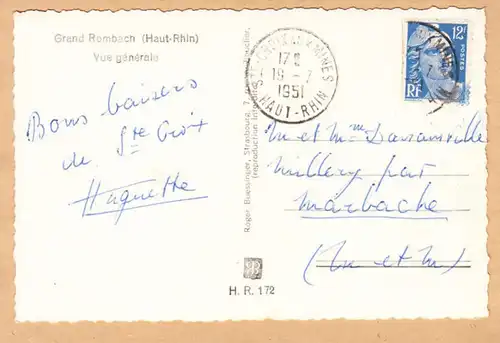 Grand Rombach (Haut-Rhin)
Vue générale
Bons baisers
de Ste Croix
Huguette
Roger Buessinger, Strasbourg, 7,
(reproduction interdite)
STE-CROIX-AUX-MINES
17 H
19 - 7
1951
HAUT-RHIN
12F
POSTES
RF
M et Mme
Millery par
Marbache
(M et M)
H. R. 172